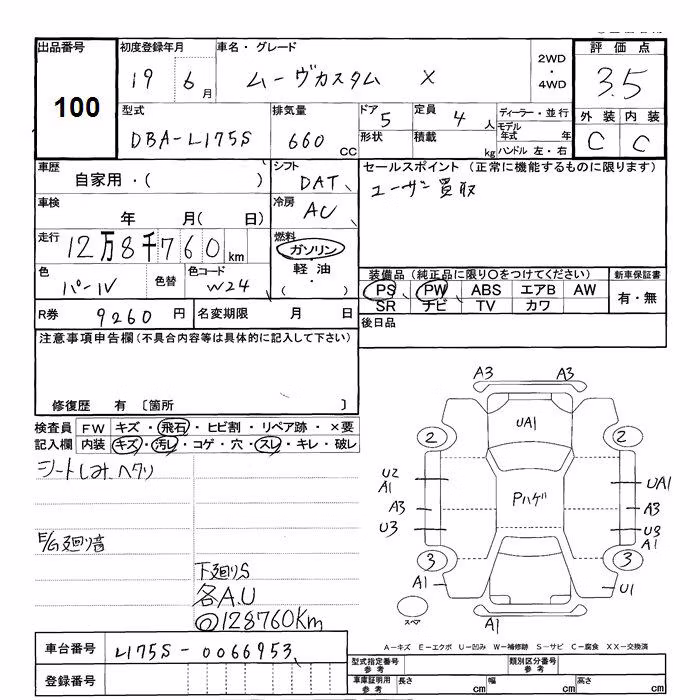 出品番号 初度登録年月 車名・グレード 2WD・4WD 評価点
100 19 6月 ムーヴカスタム X 3.5
型式 排気量 ドア 5 定員 4人 ディーラー・並行 外装 内装
DBA-L175S 660CC 形状 積載 kg モデル年式 年 ハンドル 左・右 C C
車歴 自家用・( ) シフト DAT セールスポイント (正常に機能するものに限ります)
車検 年 月( 日) 冷房 AC ユーザー買取
走行 12万8千760km 燃料 ガソリン・軽油・( )
色 パール 色替 色コード W24 装備品(純正品に限り○をつけてください) 新車保証書
PS PW ABS エアB AW 有・無
SR ナビ TV カワ
R券 9260円 名変期限 月 日 後日品
注意事項申告欄(不具合内容等は具体的に記入して下さい)
修復歴 有 〔箇所 〕
検査員 FW キズ・飛石・ヒビ割・リペア跡・×要
記入欄 内装 キズ・汚レ・コゲ・穴・スレ・キレ・破レ
シートしみ、ヘタリ
E/G廻り音
下廻りS
各A.U
◎128760Km
A3 A3
UA1
2 2
U2 UA1
A1
Pハゲ
A3 A3
U3 U3
A1
3 3
A1 U1
スペア A1
A-キズ E-エクボ U-凹み W-補修跡 S-サビ C-腐食 XX-交換済
車台番号 L175S-0066953
登録番号
型式指定番号 参考 類別区分番号 参考
車庫証明用 参考 長さ cm 幅 cm 高さ cm